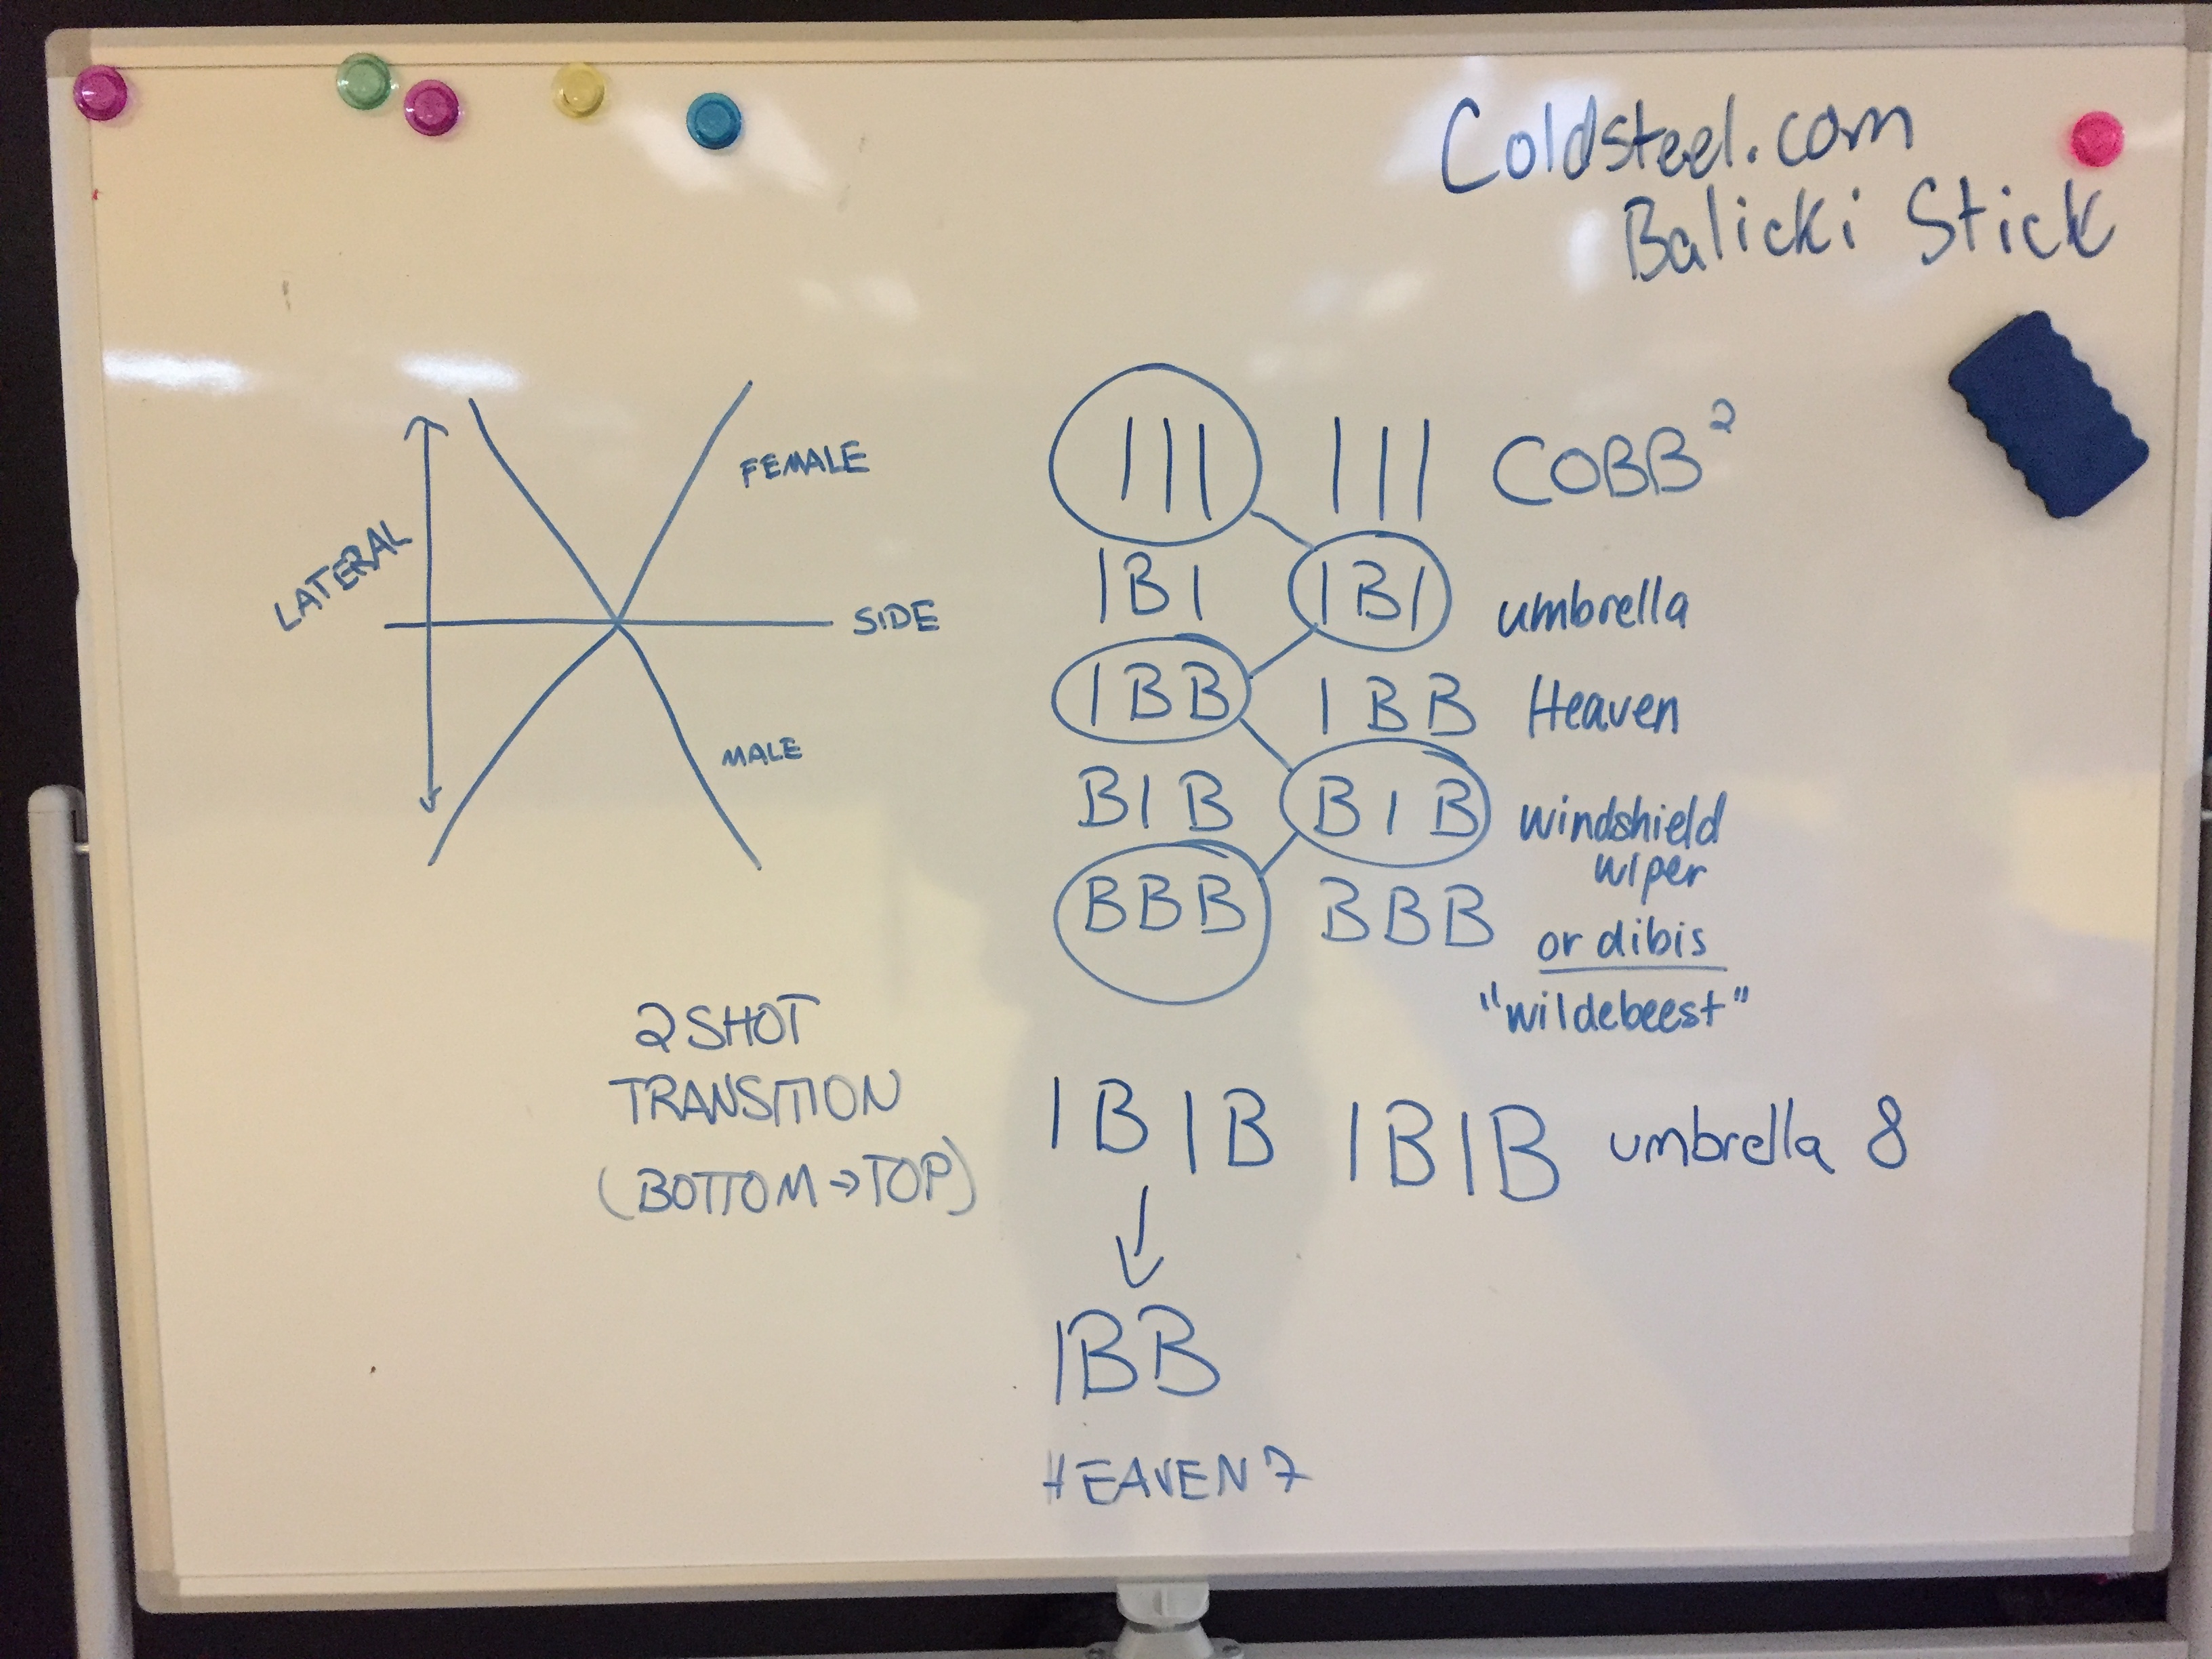 Coldsteel.com
Balicki Stick
LATERAL
FEMALE
SIDE
MALE
||| ||| COBB²
|B| |B| umbrella
|BB |BB Heaven
B|B B|B windshield
wiper
BBB BBB or dibis
"wildebeest"
2 SHOT
TRANSITION
(BOTTOM → TOP)
|B|B |B|B umbrella 8
↓
|BB
HEAVEN 7